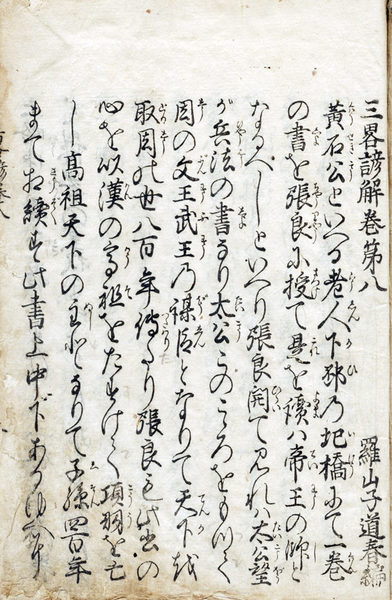 三畧諺解巻第八
羅山子道春編
黄石公といへる老人下邳の圯橋にて一巻
の書を張良に授て是を讀ハ帝王の師と
なるべしといへり張良開て見れハ太公望
が兵法の書なり太公このこころをもつて
周の文王武王の禅師となりて天下を
取周の世八百年傳たり張良も此書の
心を以漢の高祖をたすけて項羽を亡
し高祖天下の主となりて子孫四百年
まて相續す此書上中下あるゆへに